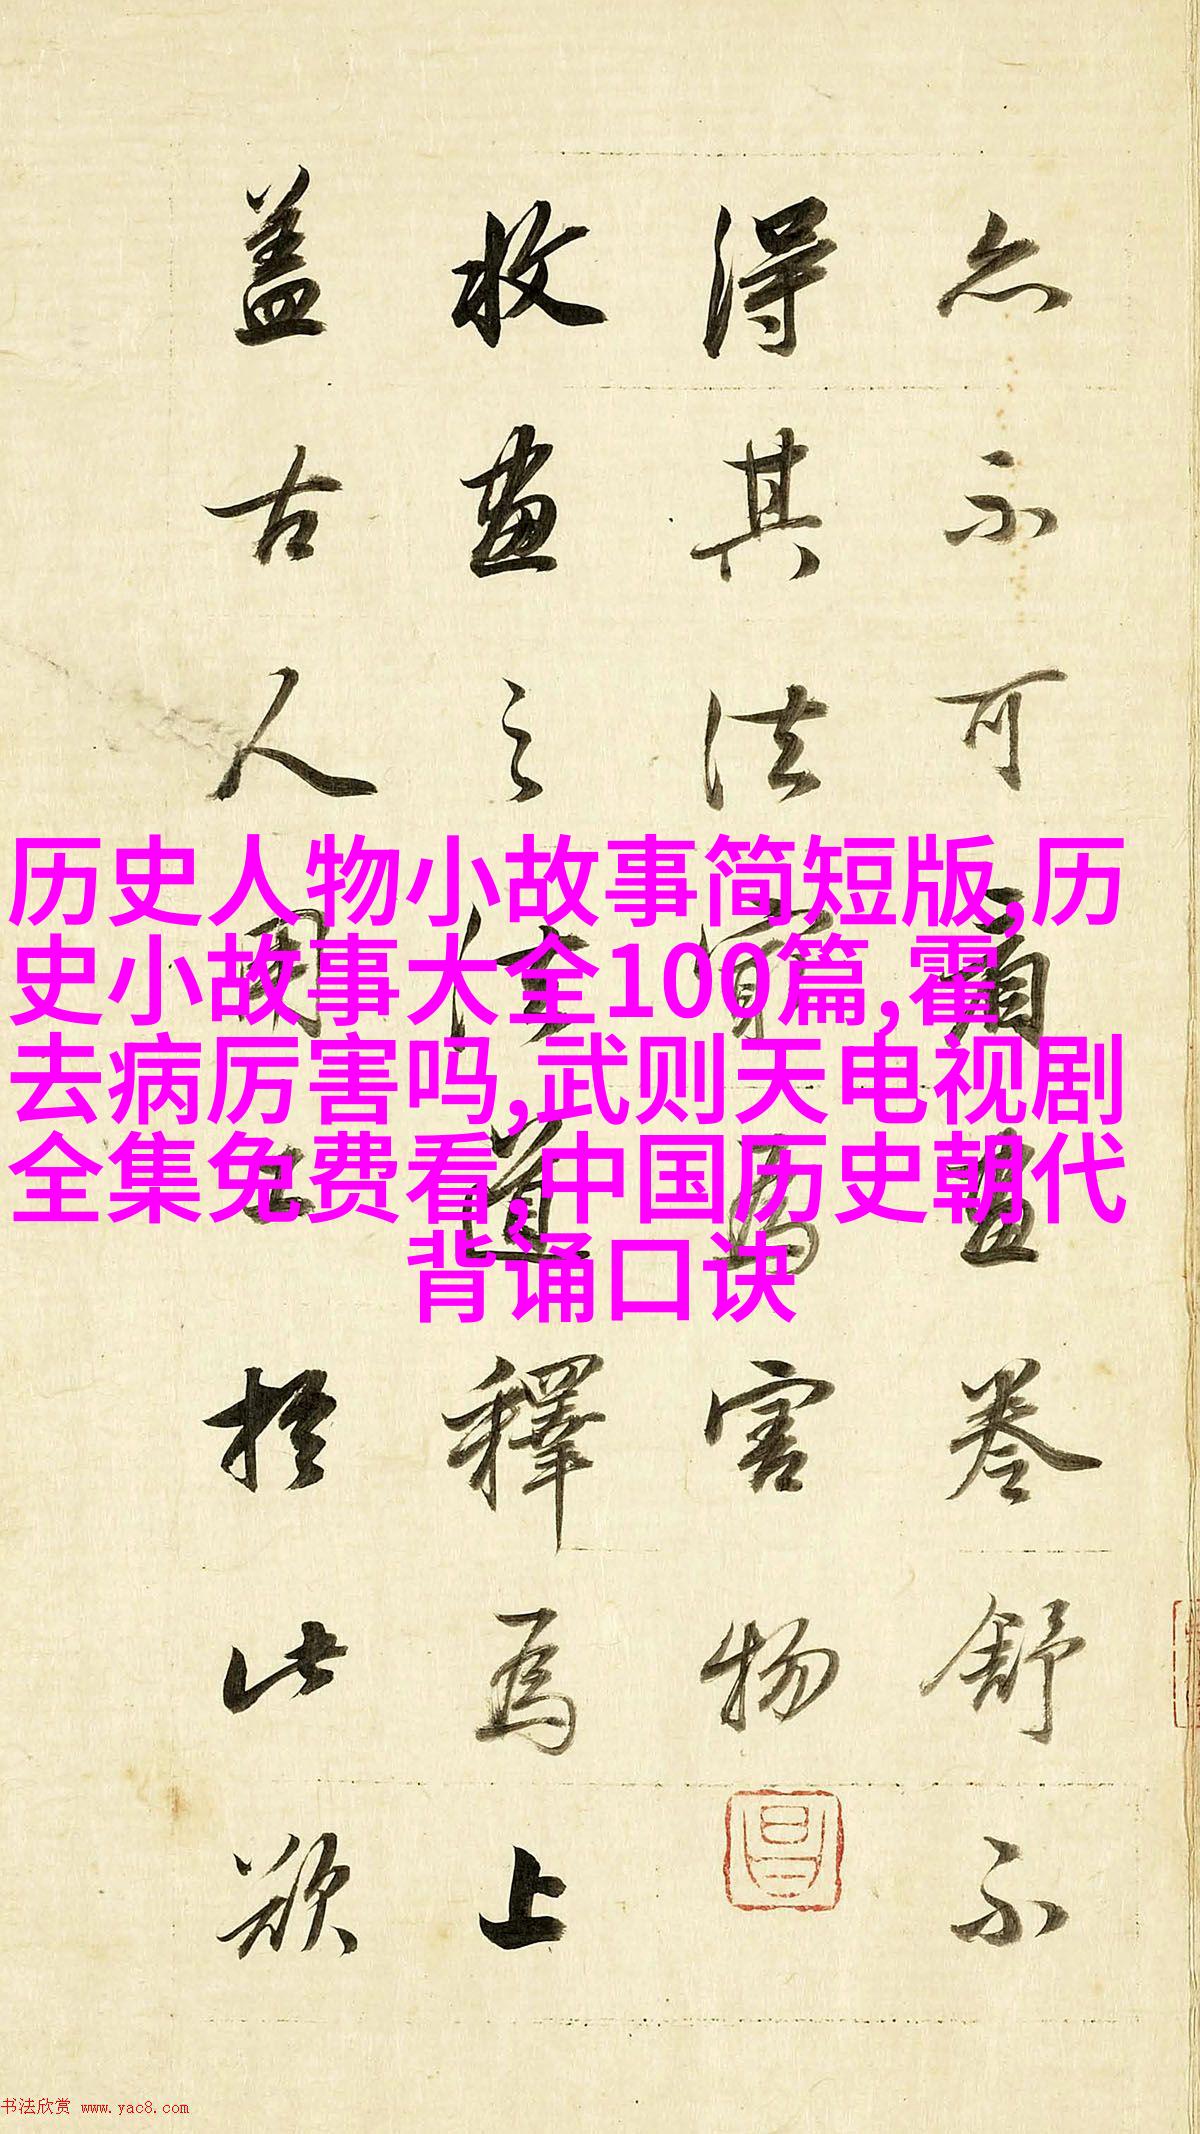 亦不可示而畫卷舒不
得其法實為害物
收畫之法道釋為上
蓋古人用工於此欲
历史人物小故事简短版,历
史小故事大全100篇,霍
去病厉害吗,武则天电视剧
全集免费看,中国历史朝代
背诵口诀
书法欣赏 www.yac8.com